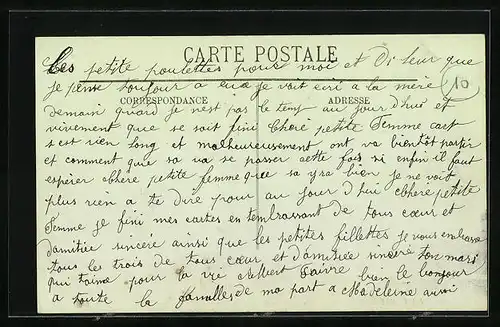 CARTE POSTALE
CORRESPONDANCE
ADRESSE
10
Les petite poulettes pour moi et Di leur que
je pense toujour a eux je voit ecri a la mère
demain quand je nest pas le temp au jour d'hui et
vivement que se soit fini Chéré petite Femme cart
s est rien long et malheureusement ont va bientôt partir
et comment que sa va se passer cette fois si enfin il faut
espérer chère petite femme que sa yra bien je ne voit
plus rien a te dire pour au jour d hui chère petite
Femme je fini mes cartes en tembrassant de tous cœur et
damitiée sincère ainsi que les petites fillettes je vous embrasse
tous les trois de tous cœur et damitiée sincère ton mari
qui taime pour la vie Albert Faivre bien le bonjour
a toute la famille de ma part a Madeleine aussi